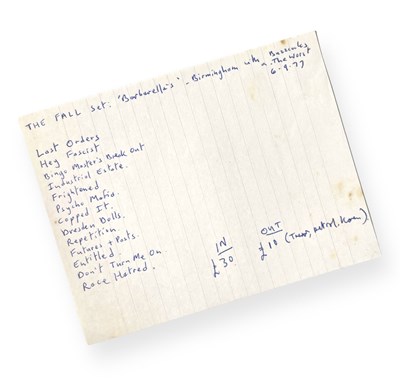 THE FALL Set: 'Barbarella's' - Birmingham with Buzzcocks
The Worst
6.9.77
Last Orders
Hey Fascist
Bingo Master's Break Out
Industrial Estate.
Frightened
Psycho Mafia.
Copped It.
Dresden Dolls.
Repetition
Futures + Pasts.
Entitled.
Don't Turn Me On
Race Hatred.
IN
£30
OUT
£18 (Tuser, petrol,